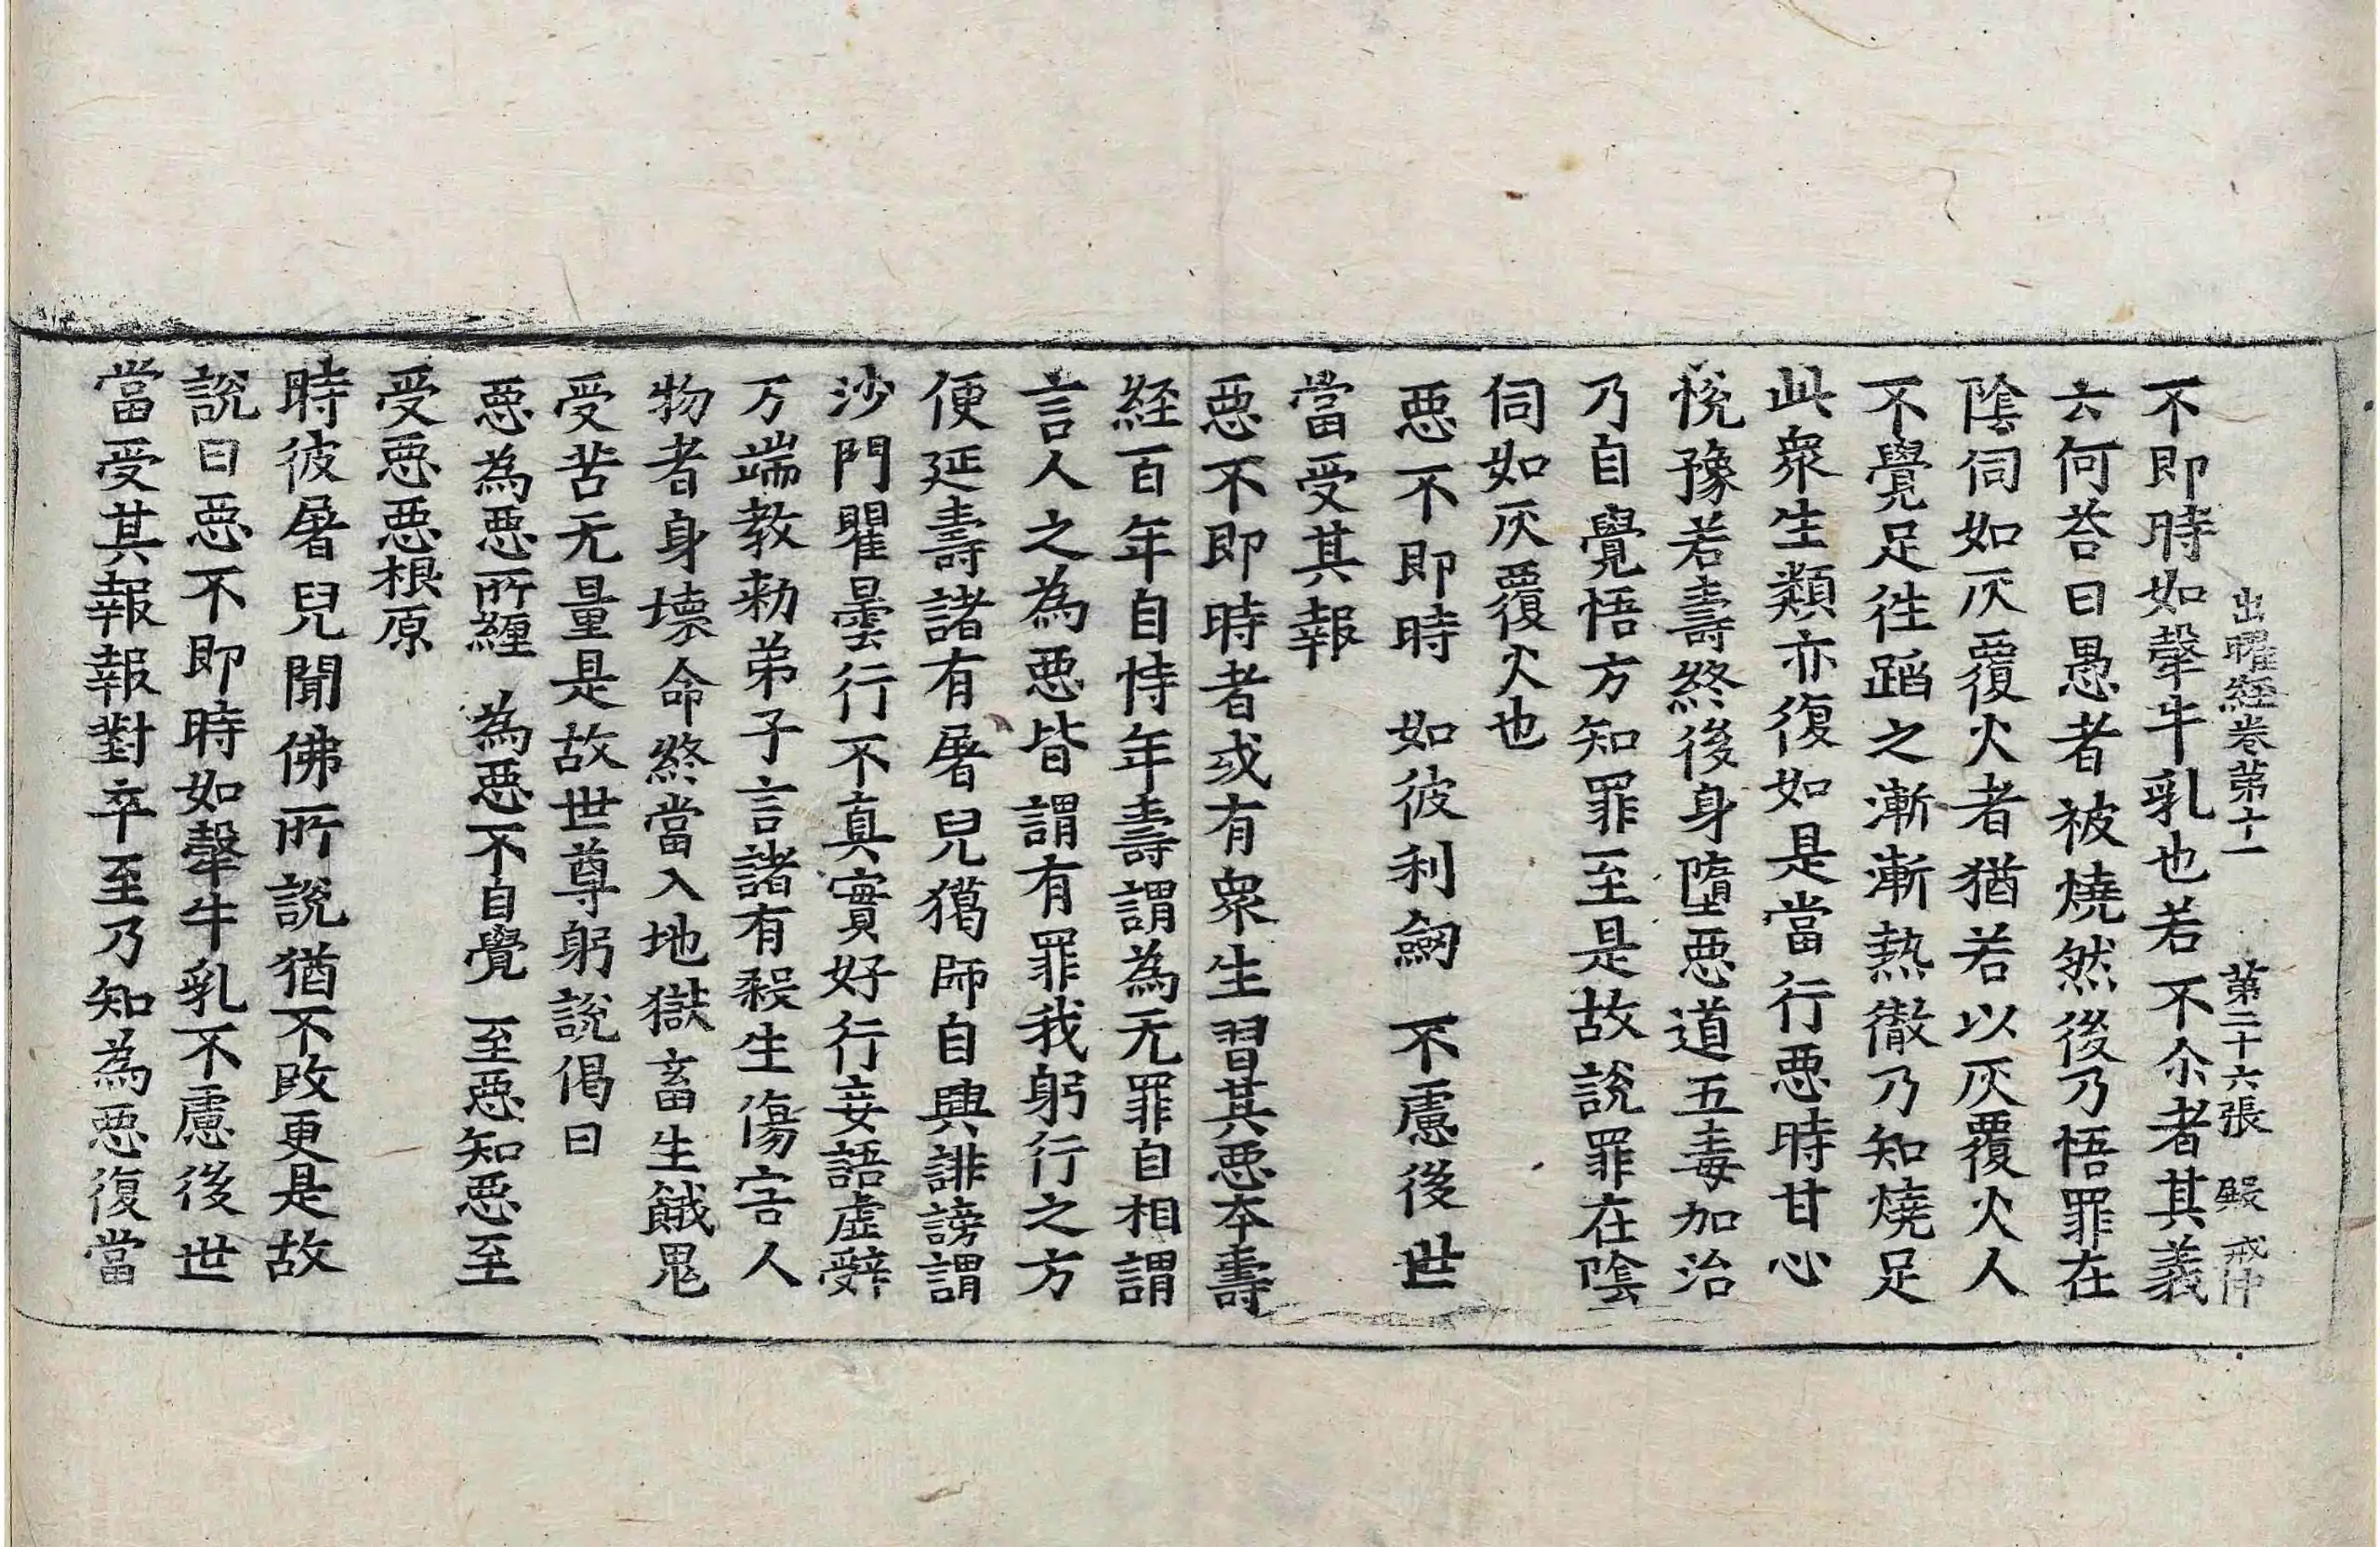 出曜経卷苐十一 苐二十六張 殿 戒沖
不即時如㲉牛乳也若不尒者其義
云何荅曰愚者被燒然後乃悟罪在
隂伺如灰覆火者猶若以灰覆火人
不覺足徃蹈之漸漸熱徹乃知燒足
此衆生類亦復如是當行惡時甘心
恱豫若壽終後身墮惡道五毒加治
乃自覺悟方知罪至是故說罪在隂
伺如灰覆火也
惡不即時 如彼利劒 不慮後世
當受其報
惡不即時者或有衆生習其惡夲壽
経百年自恃年壽謂為无罪自相謂
言人之為惡皆謂有罪我躬行之方
便延壽諸有屠兒獦師自興誹謗謂
沙門瞿曇行不真實好行妄語虛辤
万端教勑弟子言諸有殺生傷害人
物者身壞命終當入地獄畜生餓鬼
受苦无量是故世尊躬說偈曰
惡為惡所纏 為惡不自覺 至惡知惡至
受惡惡根原
時彼屠兒聞佛所說猶不改更是故
說曰惡不即時如㲉牛乳不慮後世
當受其報報對卒至乃知為惡復當